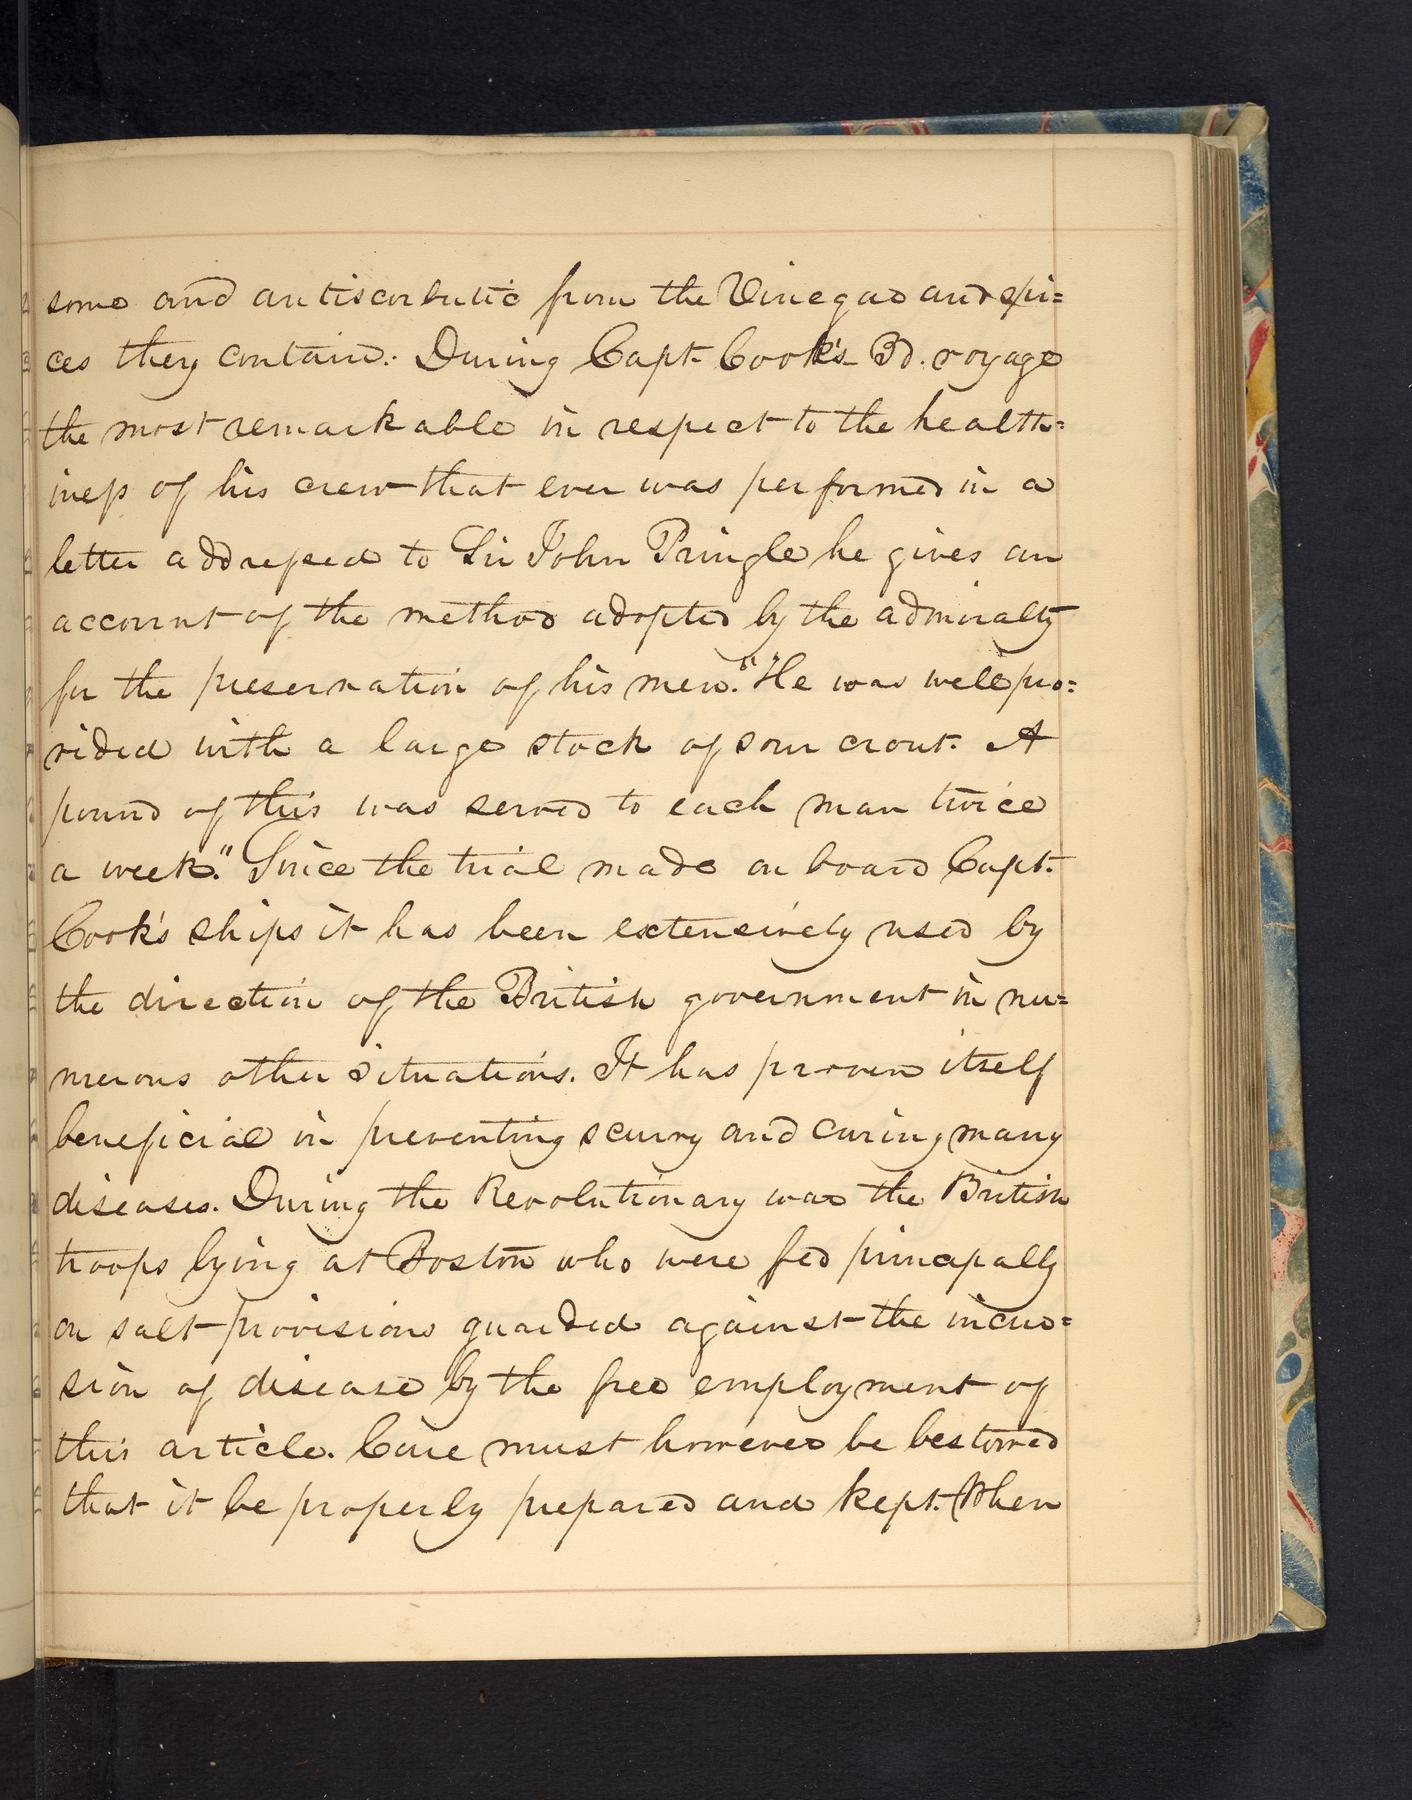 some and antiscorbutic from the Vinegar and spi=
ces they contain. During Capt. Cook's 3d. voyage
the most remarkable in respect to the health=
iness of his crew that ever was performed in a
letter addressed to Sir John Pringle he gives an
account of the method adopted by the admiralty
for the preservation of his men. "He was well pro=
vided with a large stock of sour crout. A
pound of this was served to each man twice
a week." Since the trial made on board Capt.
Cook's ships it has been extensively used by
the direction of the British government in nu=
merous other situations. It has proven itself
beneficial in preventing scurvy and curing many
diseases. During the Revolutionary war the British
troops lying at Boston who were fed principally
on salt provisions guarded against the incur=
sion of disease by the free employment of
this article. Care must however be bestowed
that it be properly prepared and kept. When